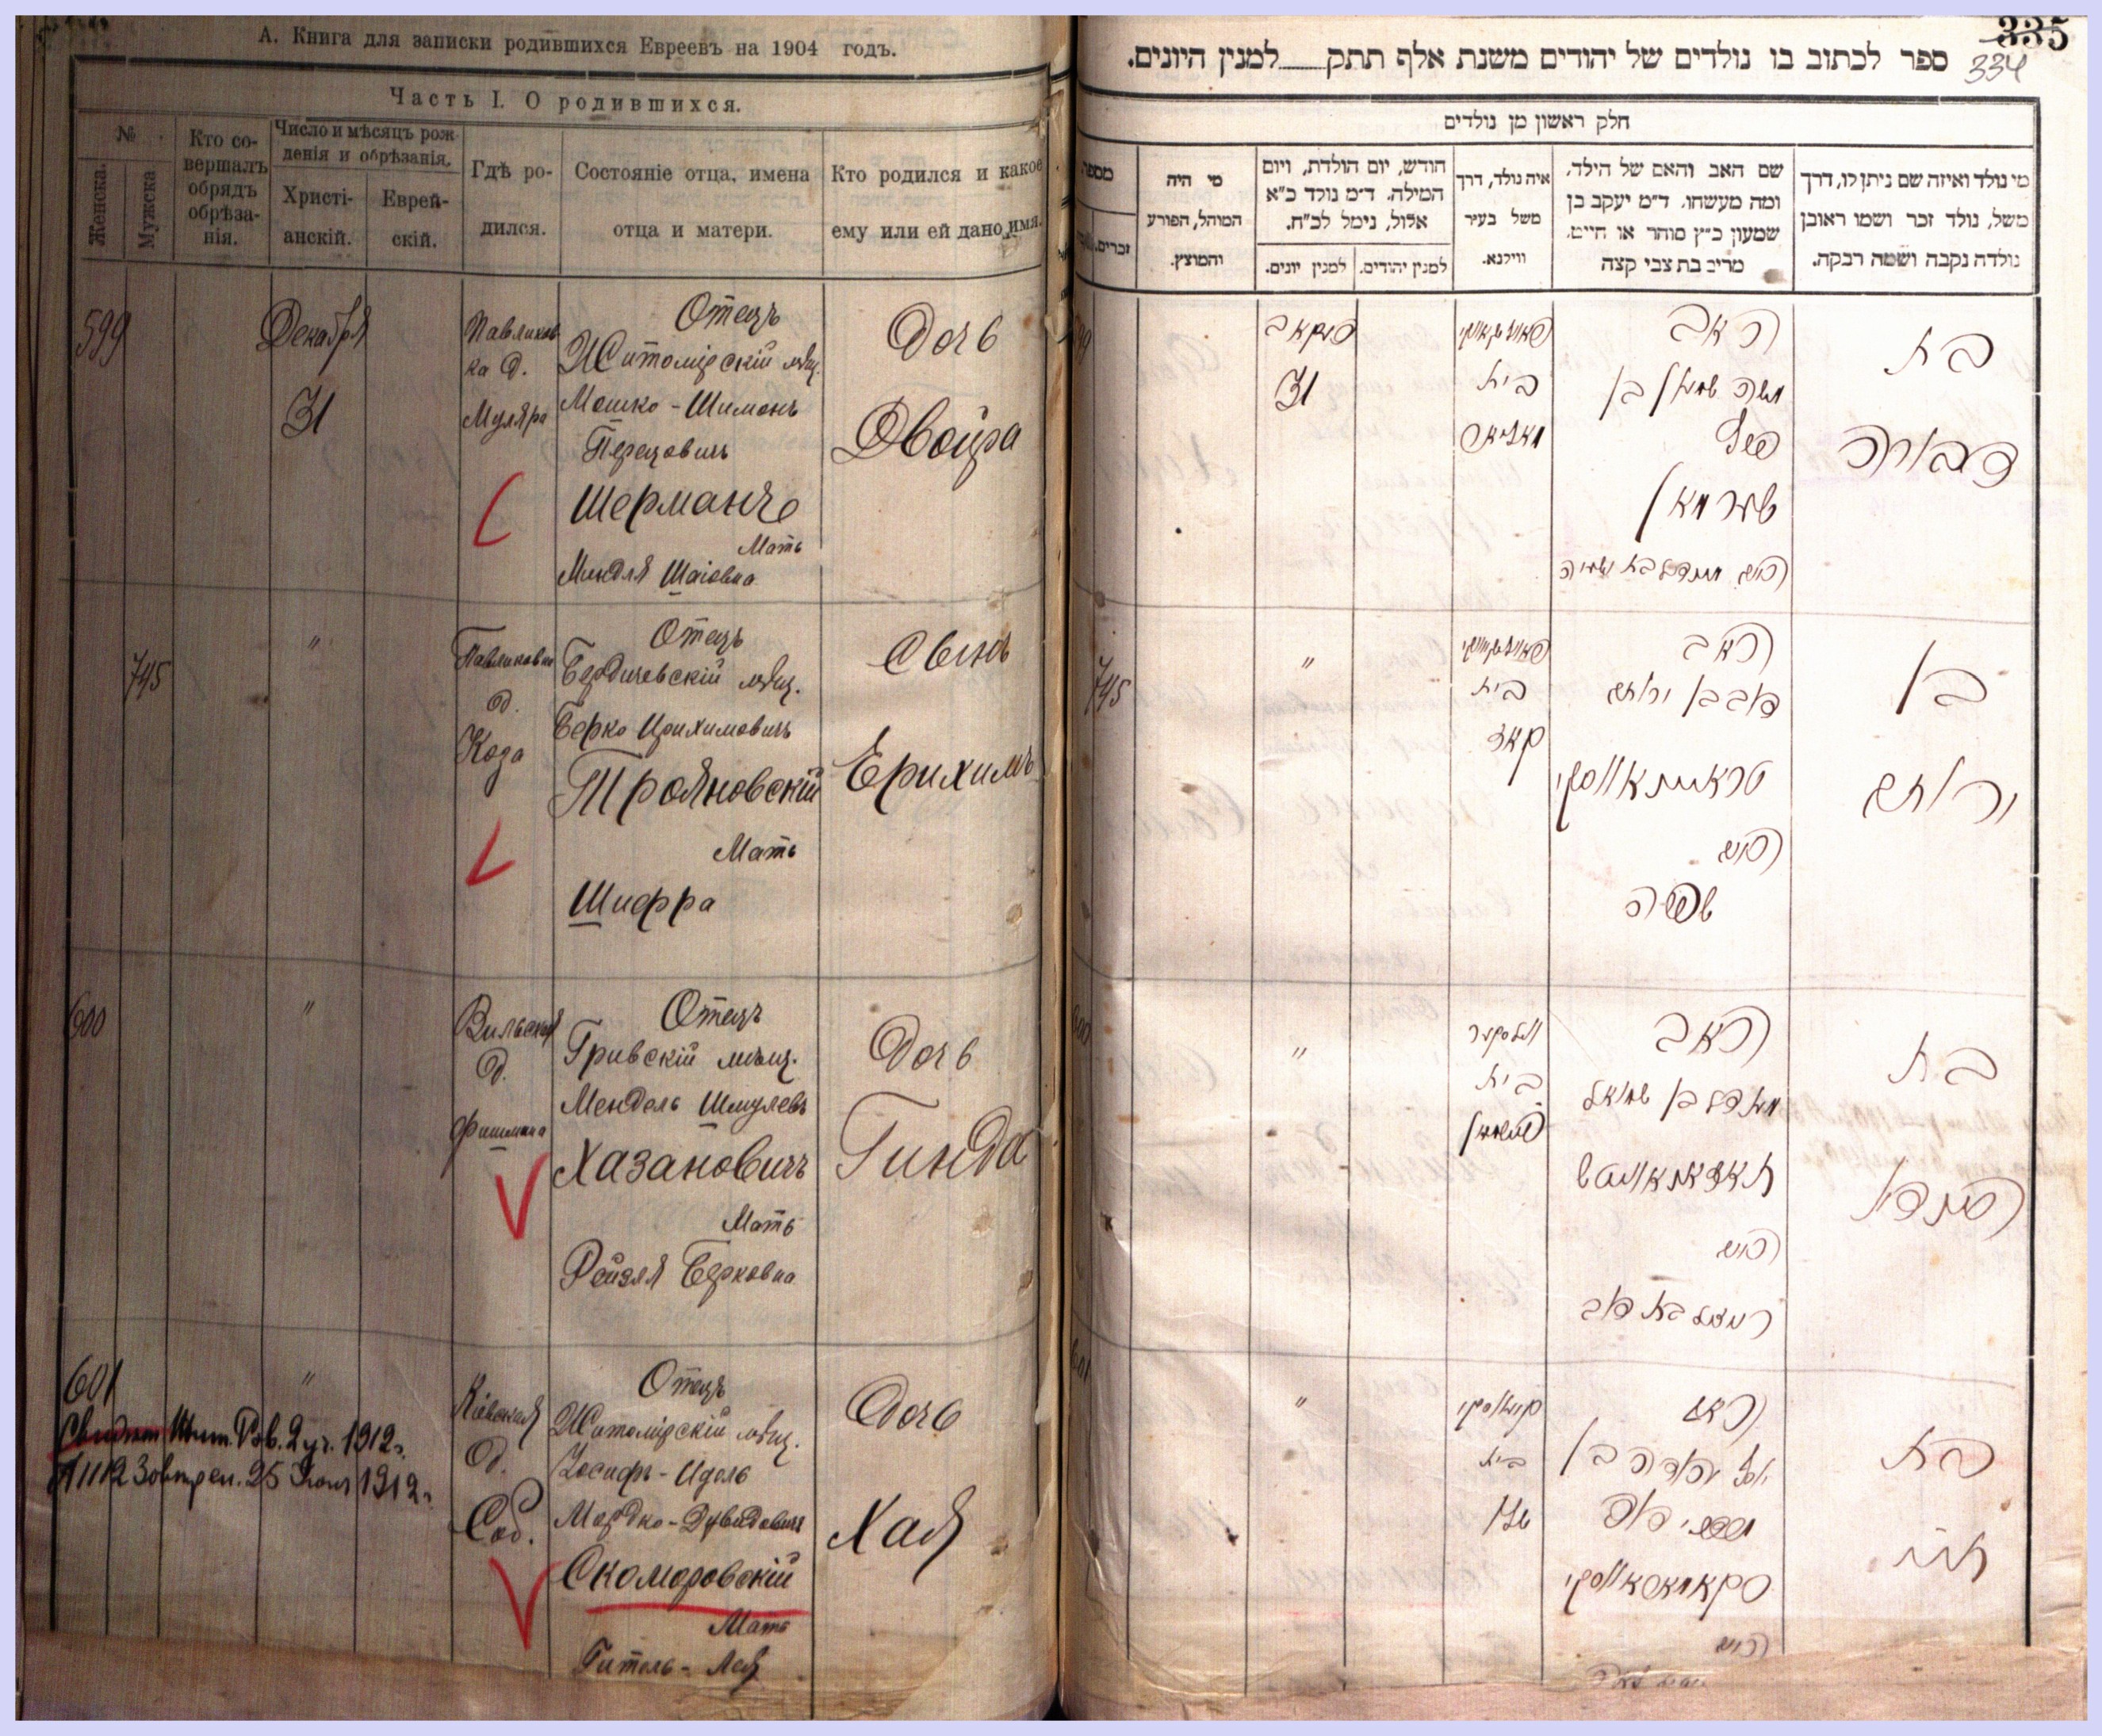 А. Книга для записки родившихся Евреевъ на 1904 годъ.
Часть I. О родившихся.
№
Женска.
Мужска
Кто со-
вершалъ
обрядъ
обрѣза-
нія.
Число и мѣсяцъ рож
денія и обрѣзанія.
Христі-
анскій.
Еврей-
скій.
Гдѣ ро-
дился.
Состояніе отца, имена
отца и матери.
Кто родился и какое
ему или ей дано имя.
599
Декабря
31
Павликов
ка д.
Муляра
Отецъ
Житомірскій мѣщ.
Мошко-Шимонъ
Перецовичъ
Шерманъ
Мать
Миндля Шаіовна
Дочь
Двойра
745
"
Павликовка
д.
Коза
Отецъ
Бердичевскій мѣщ.
Берко Ирихимовичъ
Трояновскій
Мать
Шифра
Сынъ
Ерихимъ
600
"
Вильская
д.
Фишмана
Отецъ
Гривскій мѣщ.
Мендель Шмулевъ
Хазановичъ
Мать
Рейзля Берковна
Дочь
Гинда
601
"
1912 г.
25 Іюня 1912 г.
Кіевская
д.
Соб.
Отецъ
Житомірскій мѣщ.
Іосифъ-Идель
Мордко-Дувидовичъ
Скоморовскій
Мать
Гитель-Лея
Дочь
Хая
335
334
ספר לכתוב בו נולדים של יהודים משנת אלף תתק למנין היונים.
חלק ראשון מן נולדים
מספר
זכרים.
מי היה
המוהל, הפורע
והמוצץ.
חודש, יום הולדת, ויום
המילה. ד״מ נולד כ״א
אלול, נימל לכ״ח.
למנין יונים.
למנין יהודים.
איה נולד, דרך
משל בעיר
ווילנא.
שם האב והאם של הילד,
ומה מעשהו. ד״מ יעקב בן
שמעון כ״ץ סוהר או חייט,
מרים בת צבי קצה
מי נולד ואיזה שם ניתן לו, דרך
משל, נולד זכר ושמו ראובן
נולדה נקבה ושמה רבקה.
31
בית
האב
משה שמעון בן
שערמאן
בת
דבורה
745
"
בית
האב
דוב בן ירוחם
האם
שפרה
בן
ירוחם
600
"
בית
האב
מענדל בן שמואל
האם
רייזל בת דוב
בת
הינדא
601
"
בית
האב
יוסף יהודה בן
מרדכי דוד
האם
בת
חיה